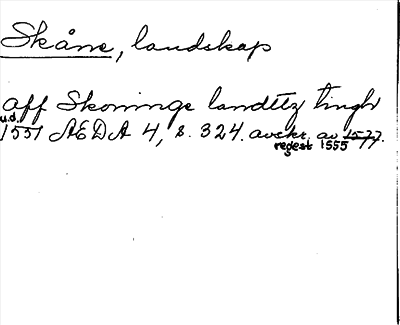 Skåne, landskap
aff Skoninge landttz tingh
u.d.
1551 AEDA 4, s. 324. avskr. av 1577.
regest 1555